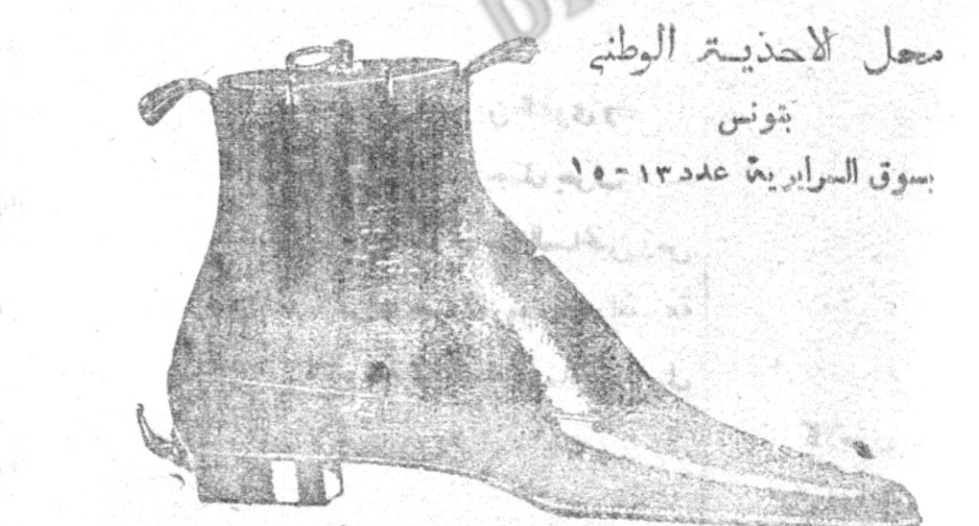 محل الاحذية الوطني
بتونس
بسوق السرايرية عدد ١٣ - ١٥